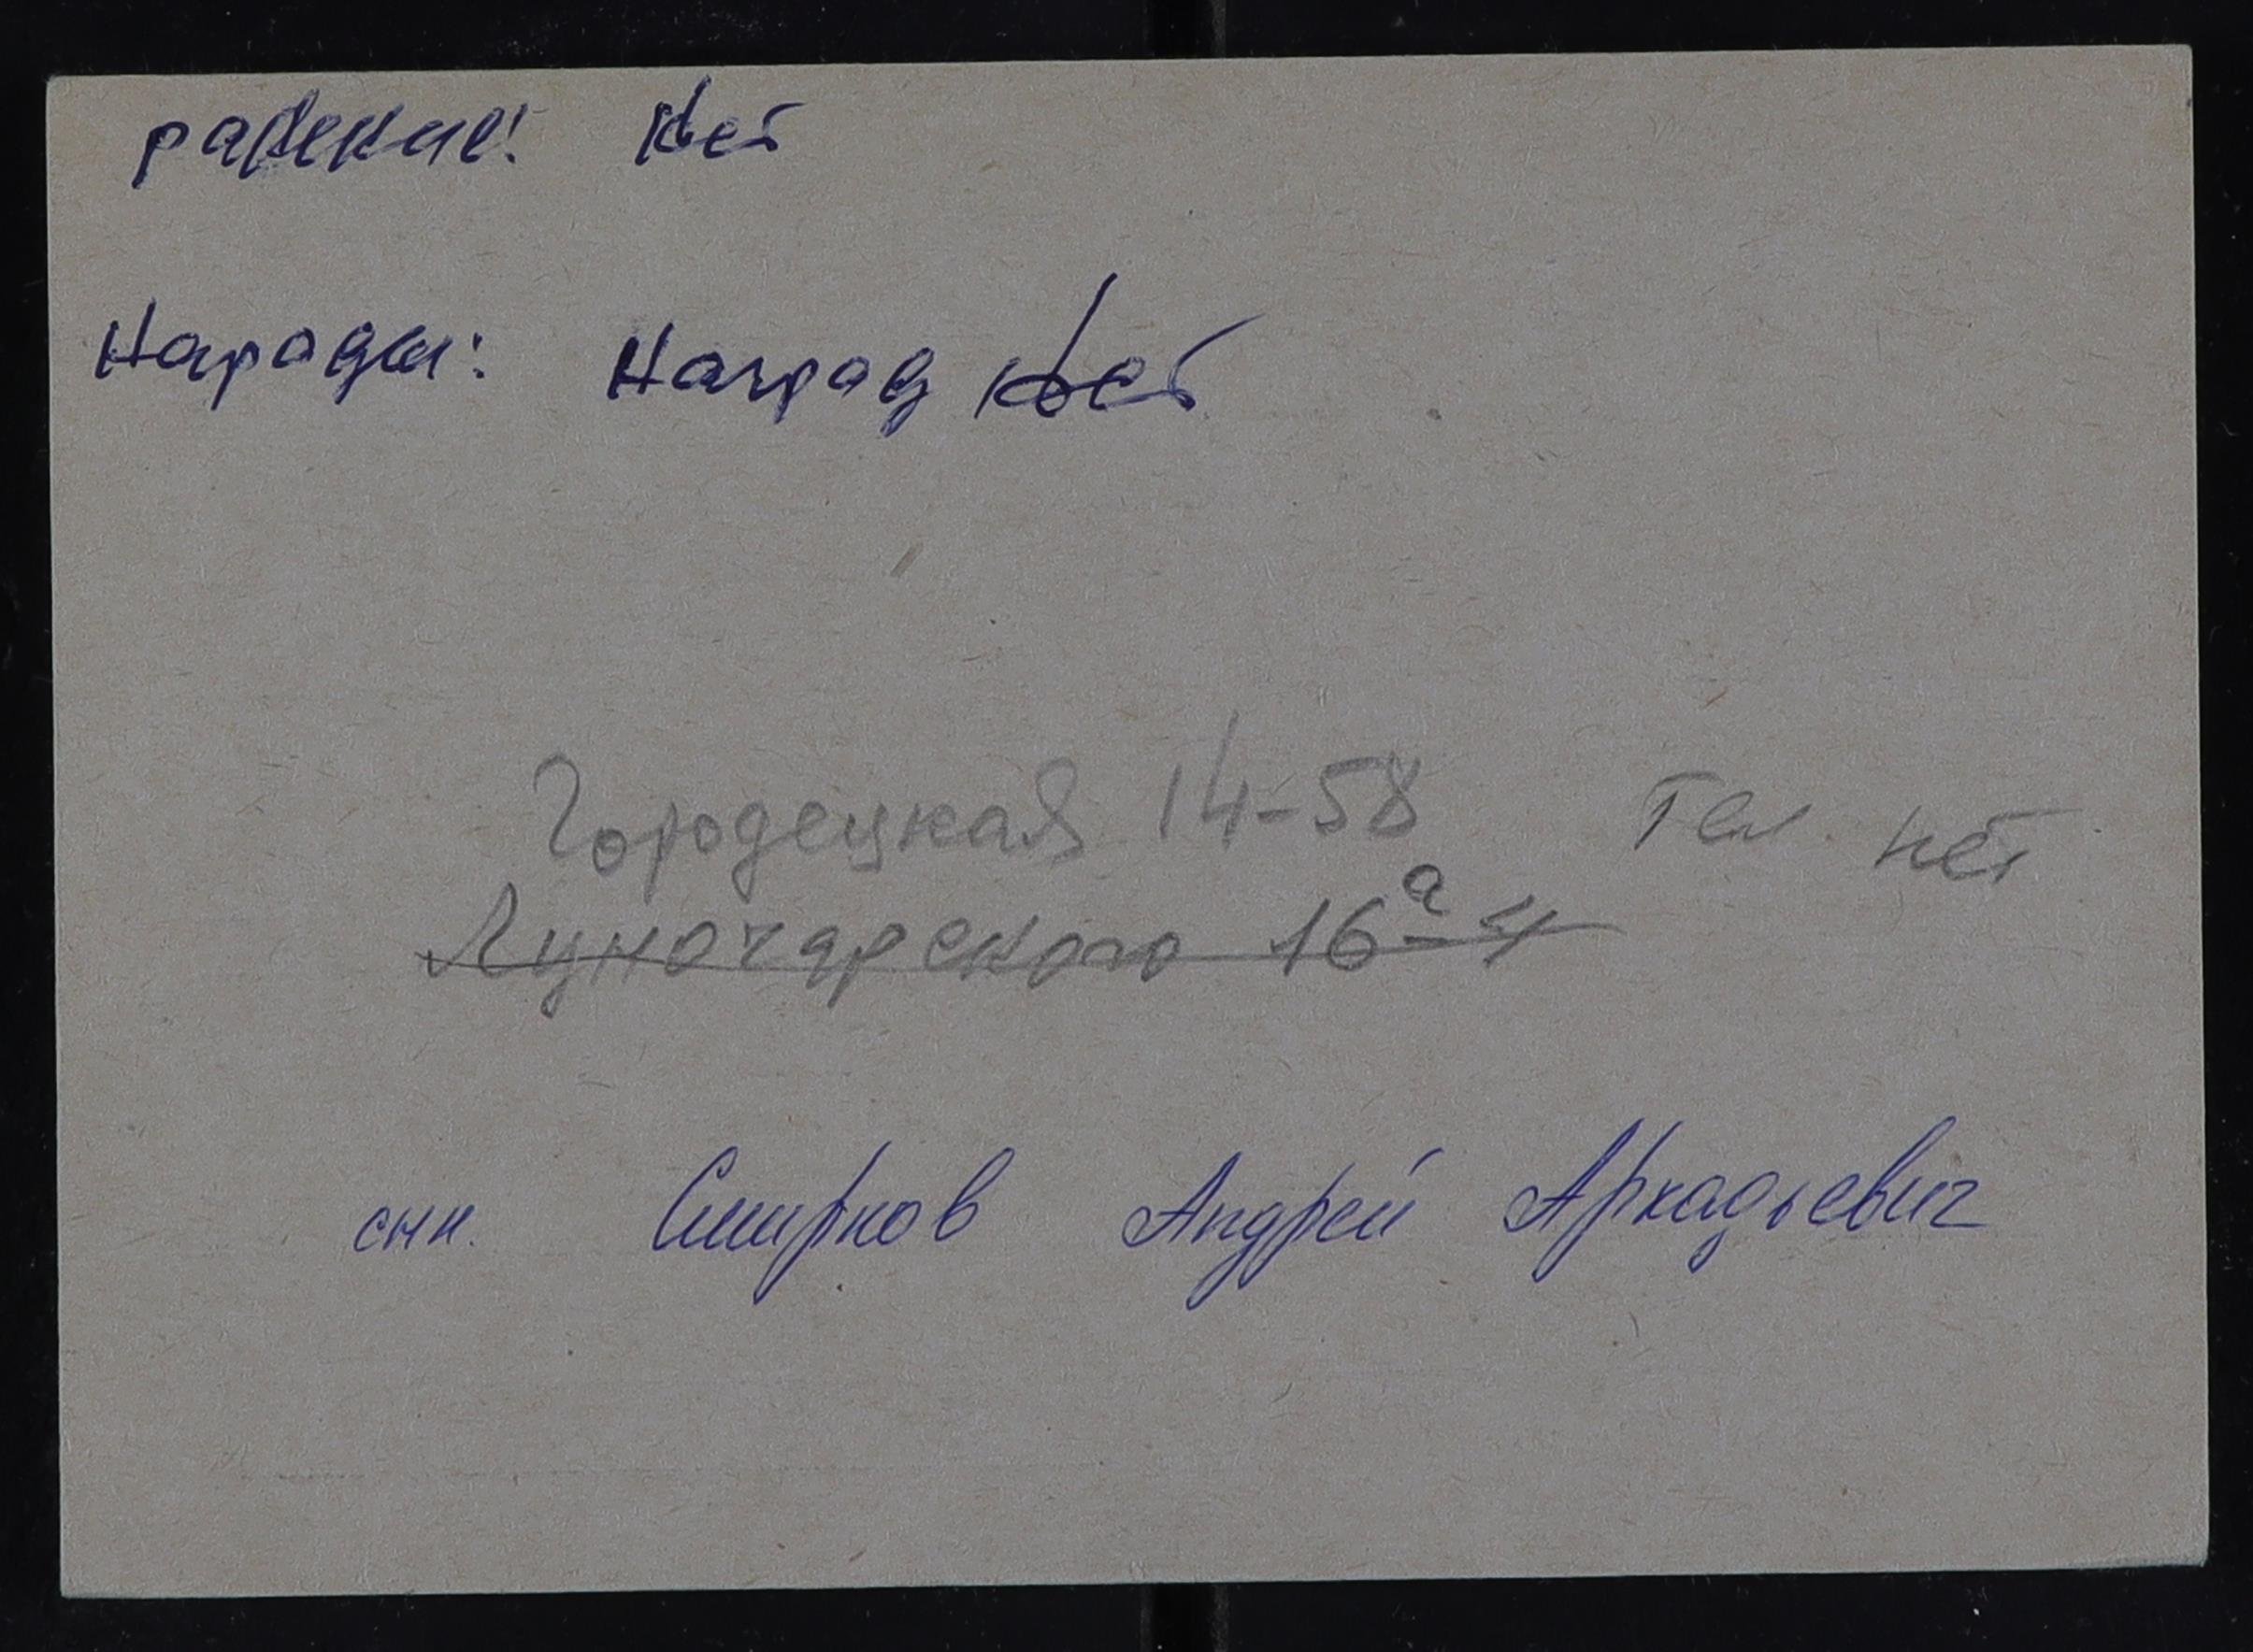 ранение: Нет
Нарады: Наград нет
Городецкая 14-58 Тел. нет
Луночарского 16а-4
сын. Смирнов Андрей Аркадьевич